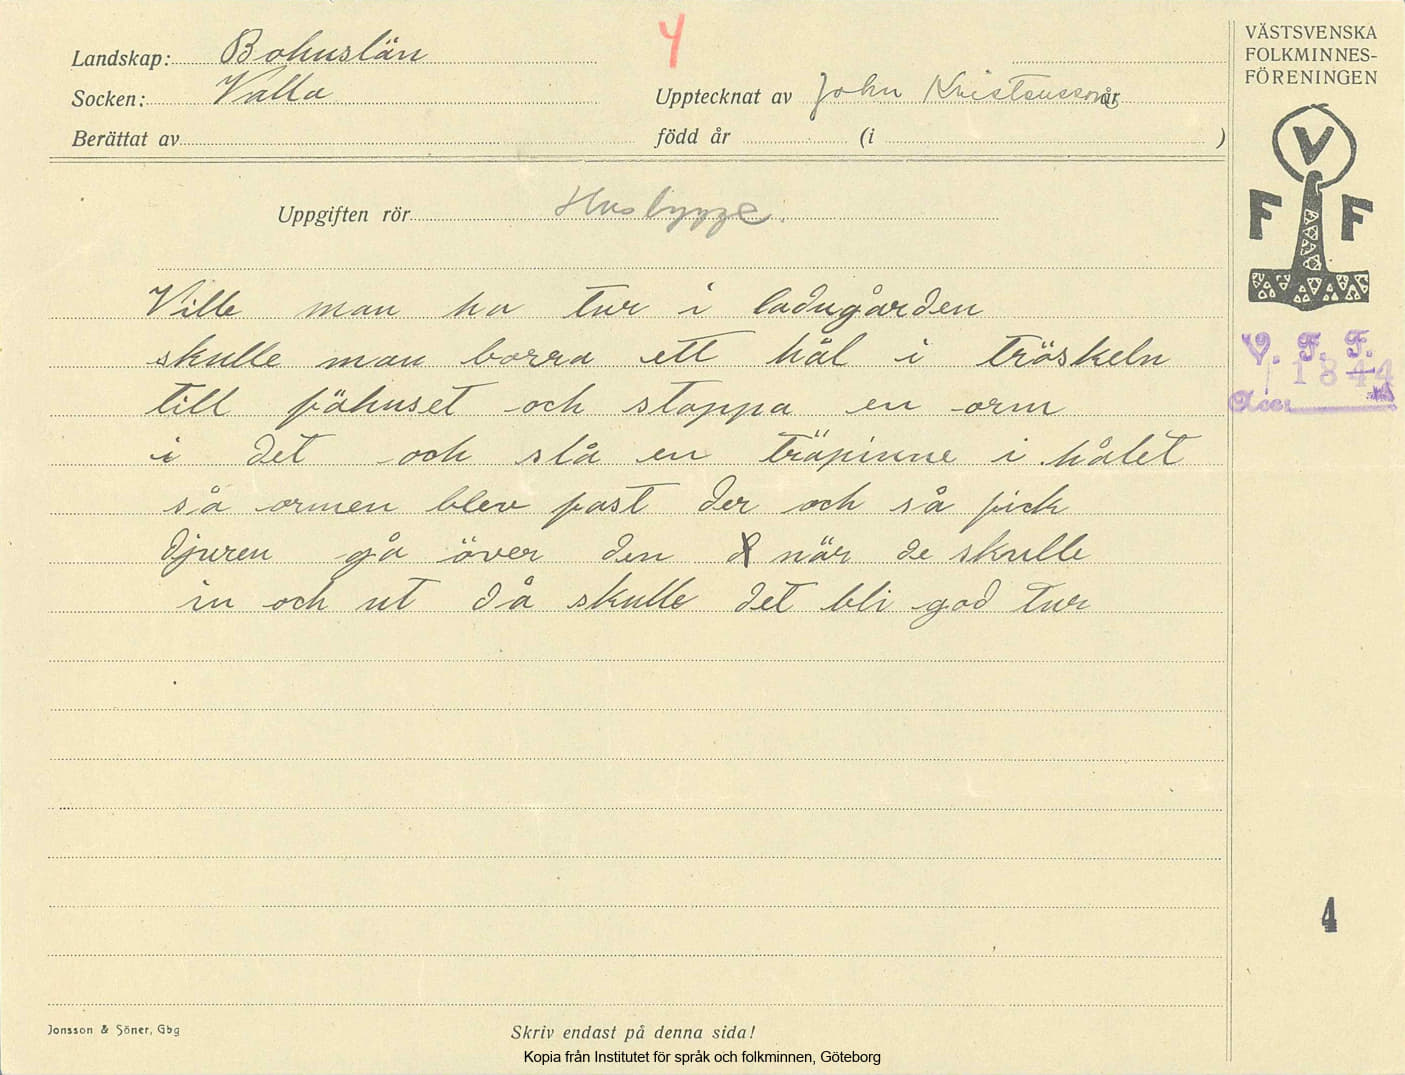 Landskap: Bohuslän
Socken: Valla
Berättat av
4
Upptecknat av John Kristensson år
född år (i )
VÄSTSVENSKA
FOLKMINNES-
FÖRENINGEN
V
F F
V. F. F.
1844
Acc:
Uppgiften rör Husbygge.
Ville man ha tur i ladugården
skulle man borra ett hål i tröskeln
till fähuset och stoppa en orm
i det och slå en träpinne i hålet
så ormen blev fast der och så fick
djuren gå över den när de skulle
in och ut då skulle det bli god tur
4
Jonsson & Söner, Gbg
Skriv endast på denna sida!
Kopia från Institutet för språk och folkminnen, Göteborg